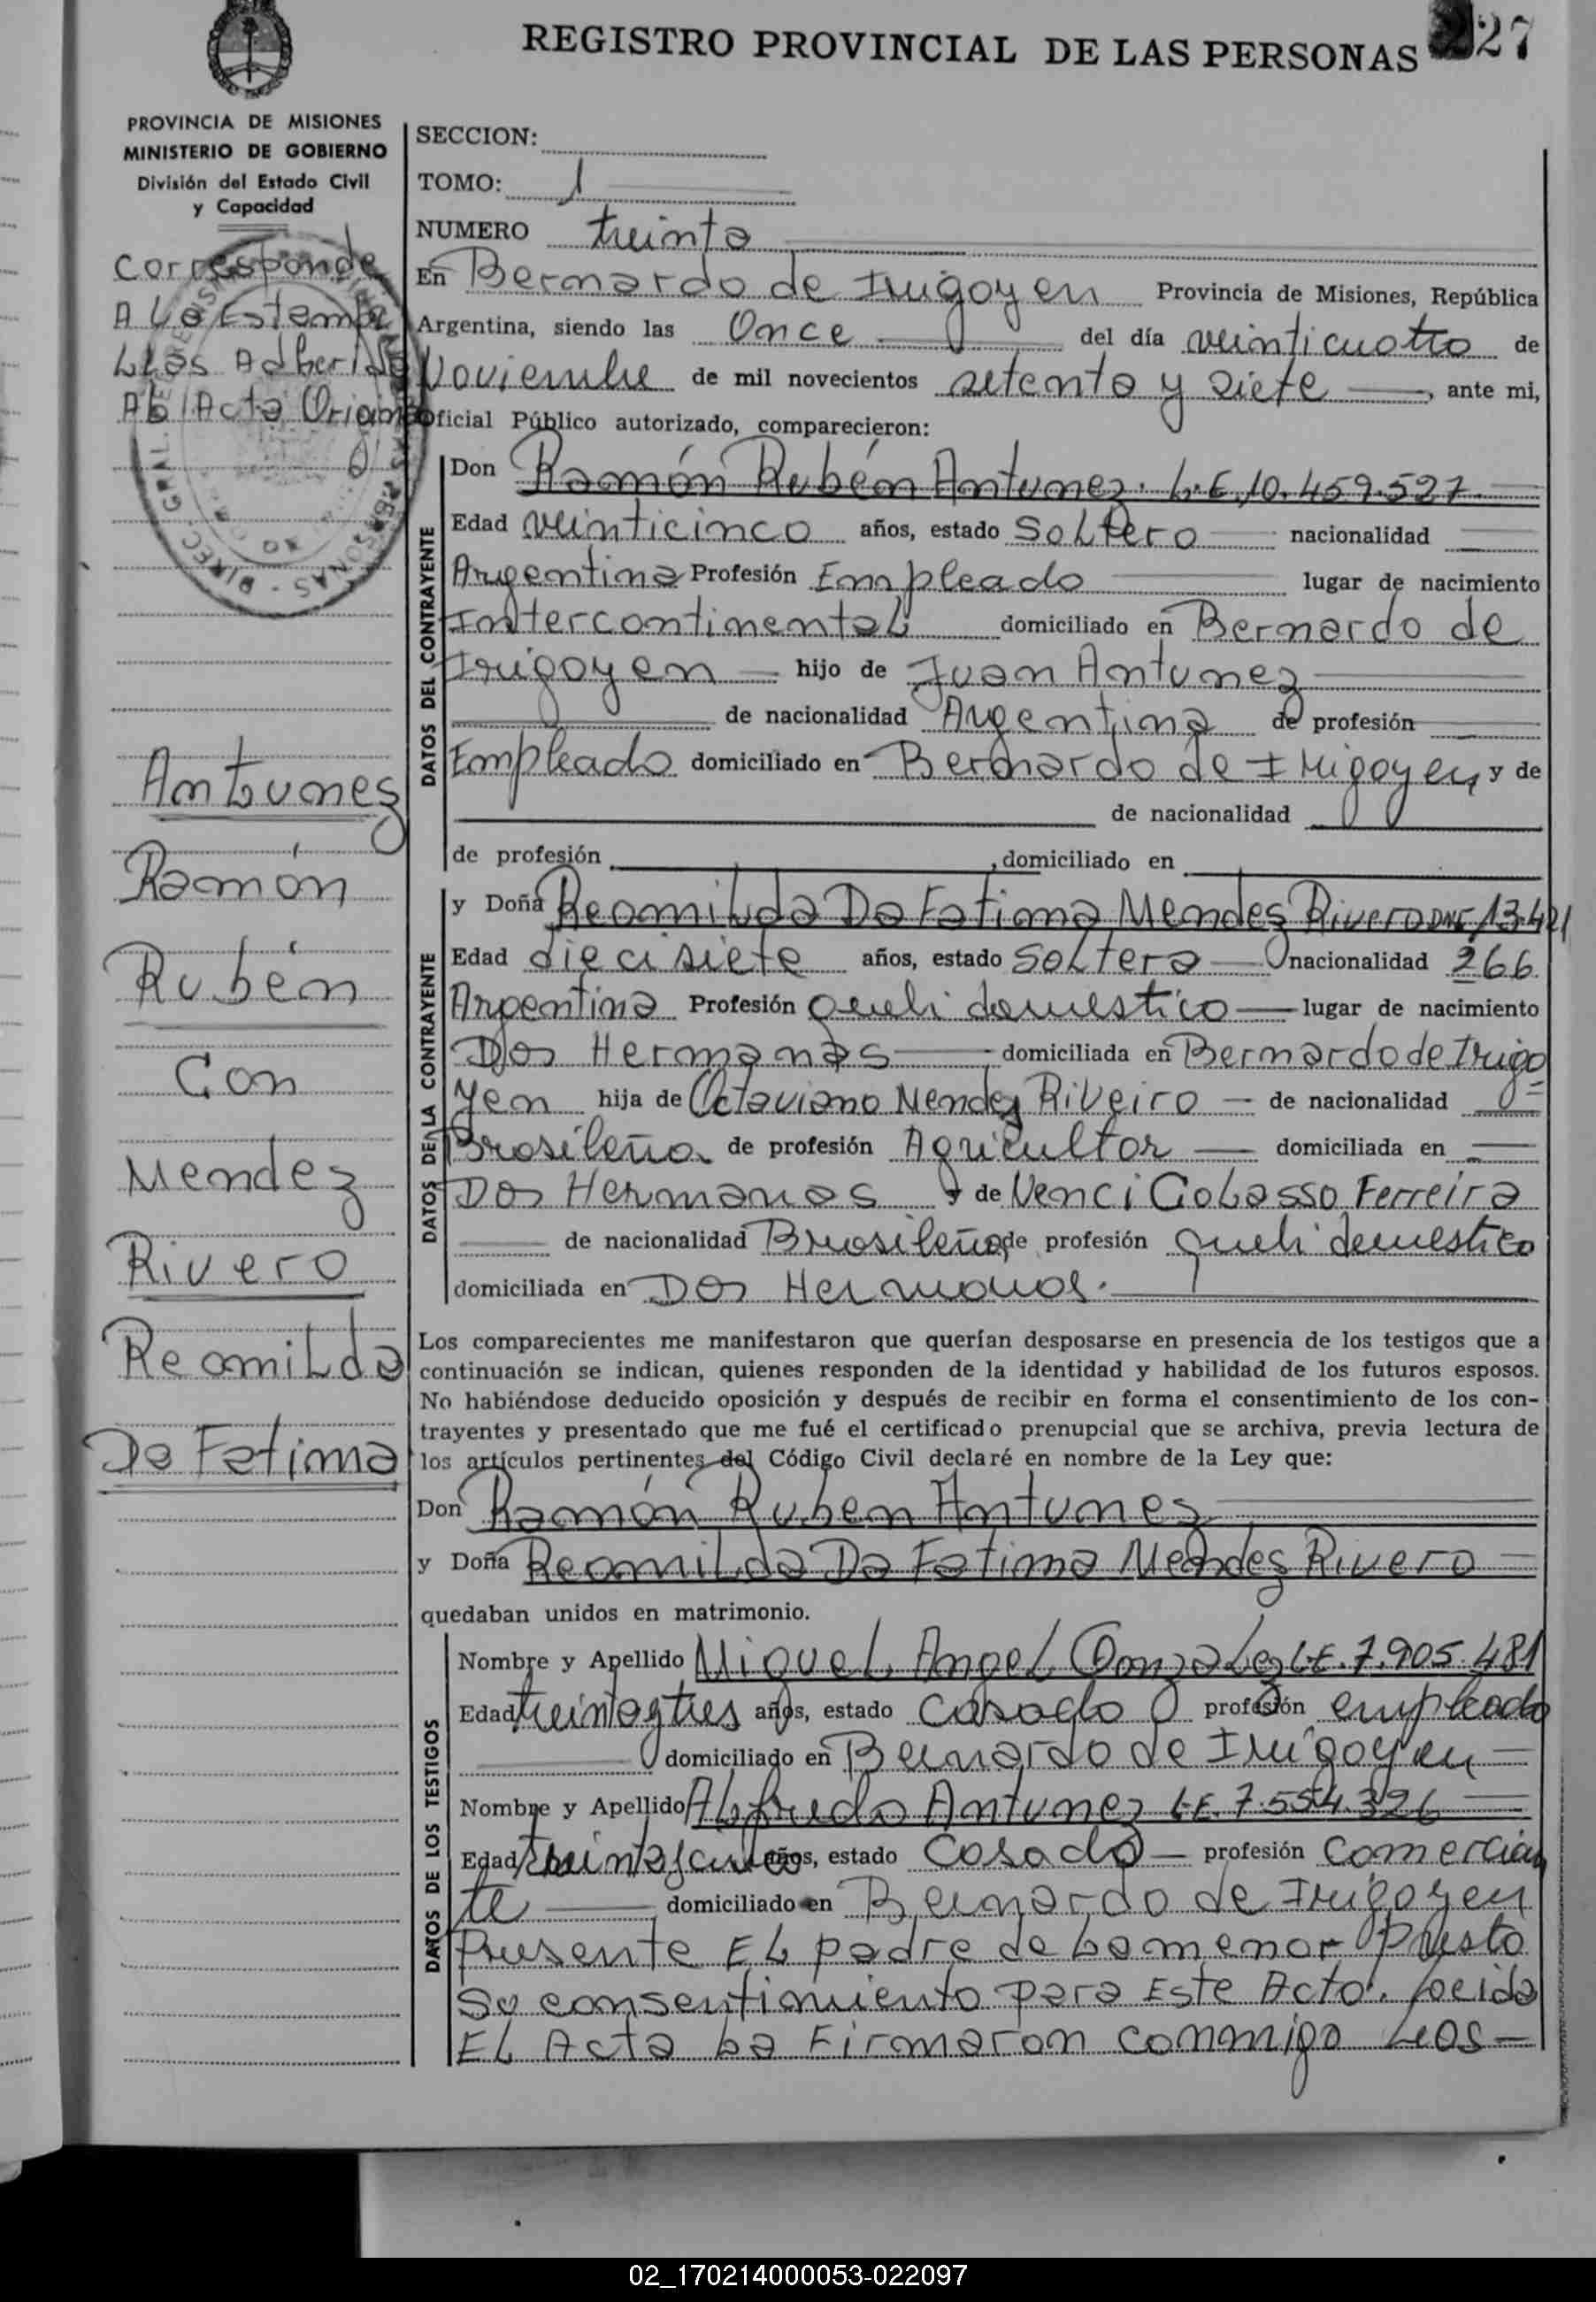 REGISTRO PROVINCIAL DE LAS PERSONAS 27
PROVINCIA DE MISIONES
MINISTERIO DE GOBIERNO
División del Estado Civil
y Capacidad
Corresponde
A La Estampi
LLas Adherida
Al Acta Origina
l
Antunez
Ramón
Rubén
Con
Mendez
Rivero
Reomilda
Da Fatima
SECCION:
TOMO: 1
NUMERO treinta
En Bernardo de Irigoyen Provincia de Misiones, República
Argentina, siendo las Once del día veinticuatro de
Noviembre de mil novecientos setenta y siete, ante mi,
Oficial Público autorizado, comparecieron:
DATOS DEL CONTRAYENTE
Don Ramón Rubén Antunez. L.E. 10.459.527
Edad veinticinco años, estado Soltero nacionalidad
Argentina Profesión Empleado lugar de nacimiento
Intercontinental domiciliado en Bernardo de
Irigoyen hijo de Juan Antunez
de nacionalidad Argentina de profesión
Empleado domiciliado en Bernardo de Irigoyen y de
de nacionalidad
de profesión , domiciliado en
DATOS DE LA CONTRAYENTE
y Doña Reomilda Da Fatima Mendes Rivero DNI 13.421
Edad diecisiete años, estado Soltera nacionalidad 266
Argentina Profesión Queh domestico lugar de nacimiento
Dos Hermanas domiciliada en Bernardo de Irigo
yen hija de Octaviano Mendez Ribeiro de nacionalidad
Brasileña de profesión Agricultor domiciliada en
Dos Hermanas y de Venci Golasso Ferreira
de nacionalidad Brasileña de profesión queh domestico
domiciliada en Dos Hermanas.
Los comparecientes me manifestaron que querían desposarse en presencia de los testigos que a
continuación se indican, quienes responden de la identidad y habilidad de los futuros esposos.
No habiéndose deducido oposición y después de recibir en forma el consentimiento de los con-
trayentes y presentado que me fué el certificado prenupcial que se archiva, previa lectura de
los artículos pertinentes del Código Civil declaré en nombre de la Ley que:
Don Ramón Ruben Antunez
y Doña Reomilda Da Fatima Mendes Rivero
quedaban unidos en matrimonio.
DATOS DE LOS TESTIGOS
Nombre y Apellido Miguel Angel Gonzalez L.E. 7.905.481
Edad treintaytres años, estado Casado profesión empleado
domiciliado en Bernardo de Irigoyen
Nombre y Apellido Alfredo Antunez L.E. 7.554.326
Edad años, estado Casado profesión Comercian
te domiciliado en Bernardo de Irigoyen
Presente El padre de La menor Presto
Su consentimiento para Este Acto. Leida
El Acta La Firmaron conmigo Los
02_170214000053-022097